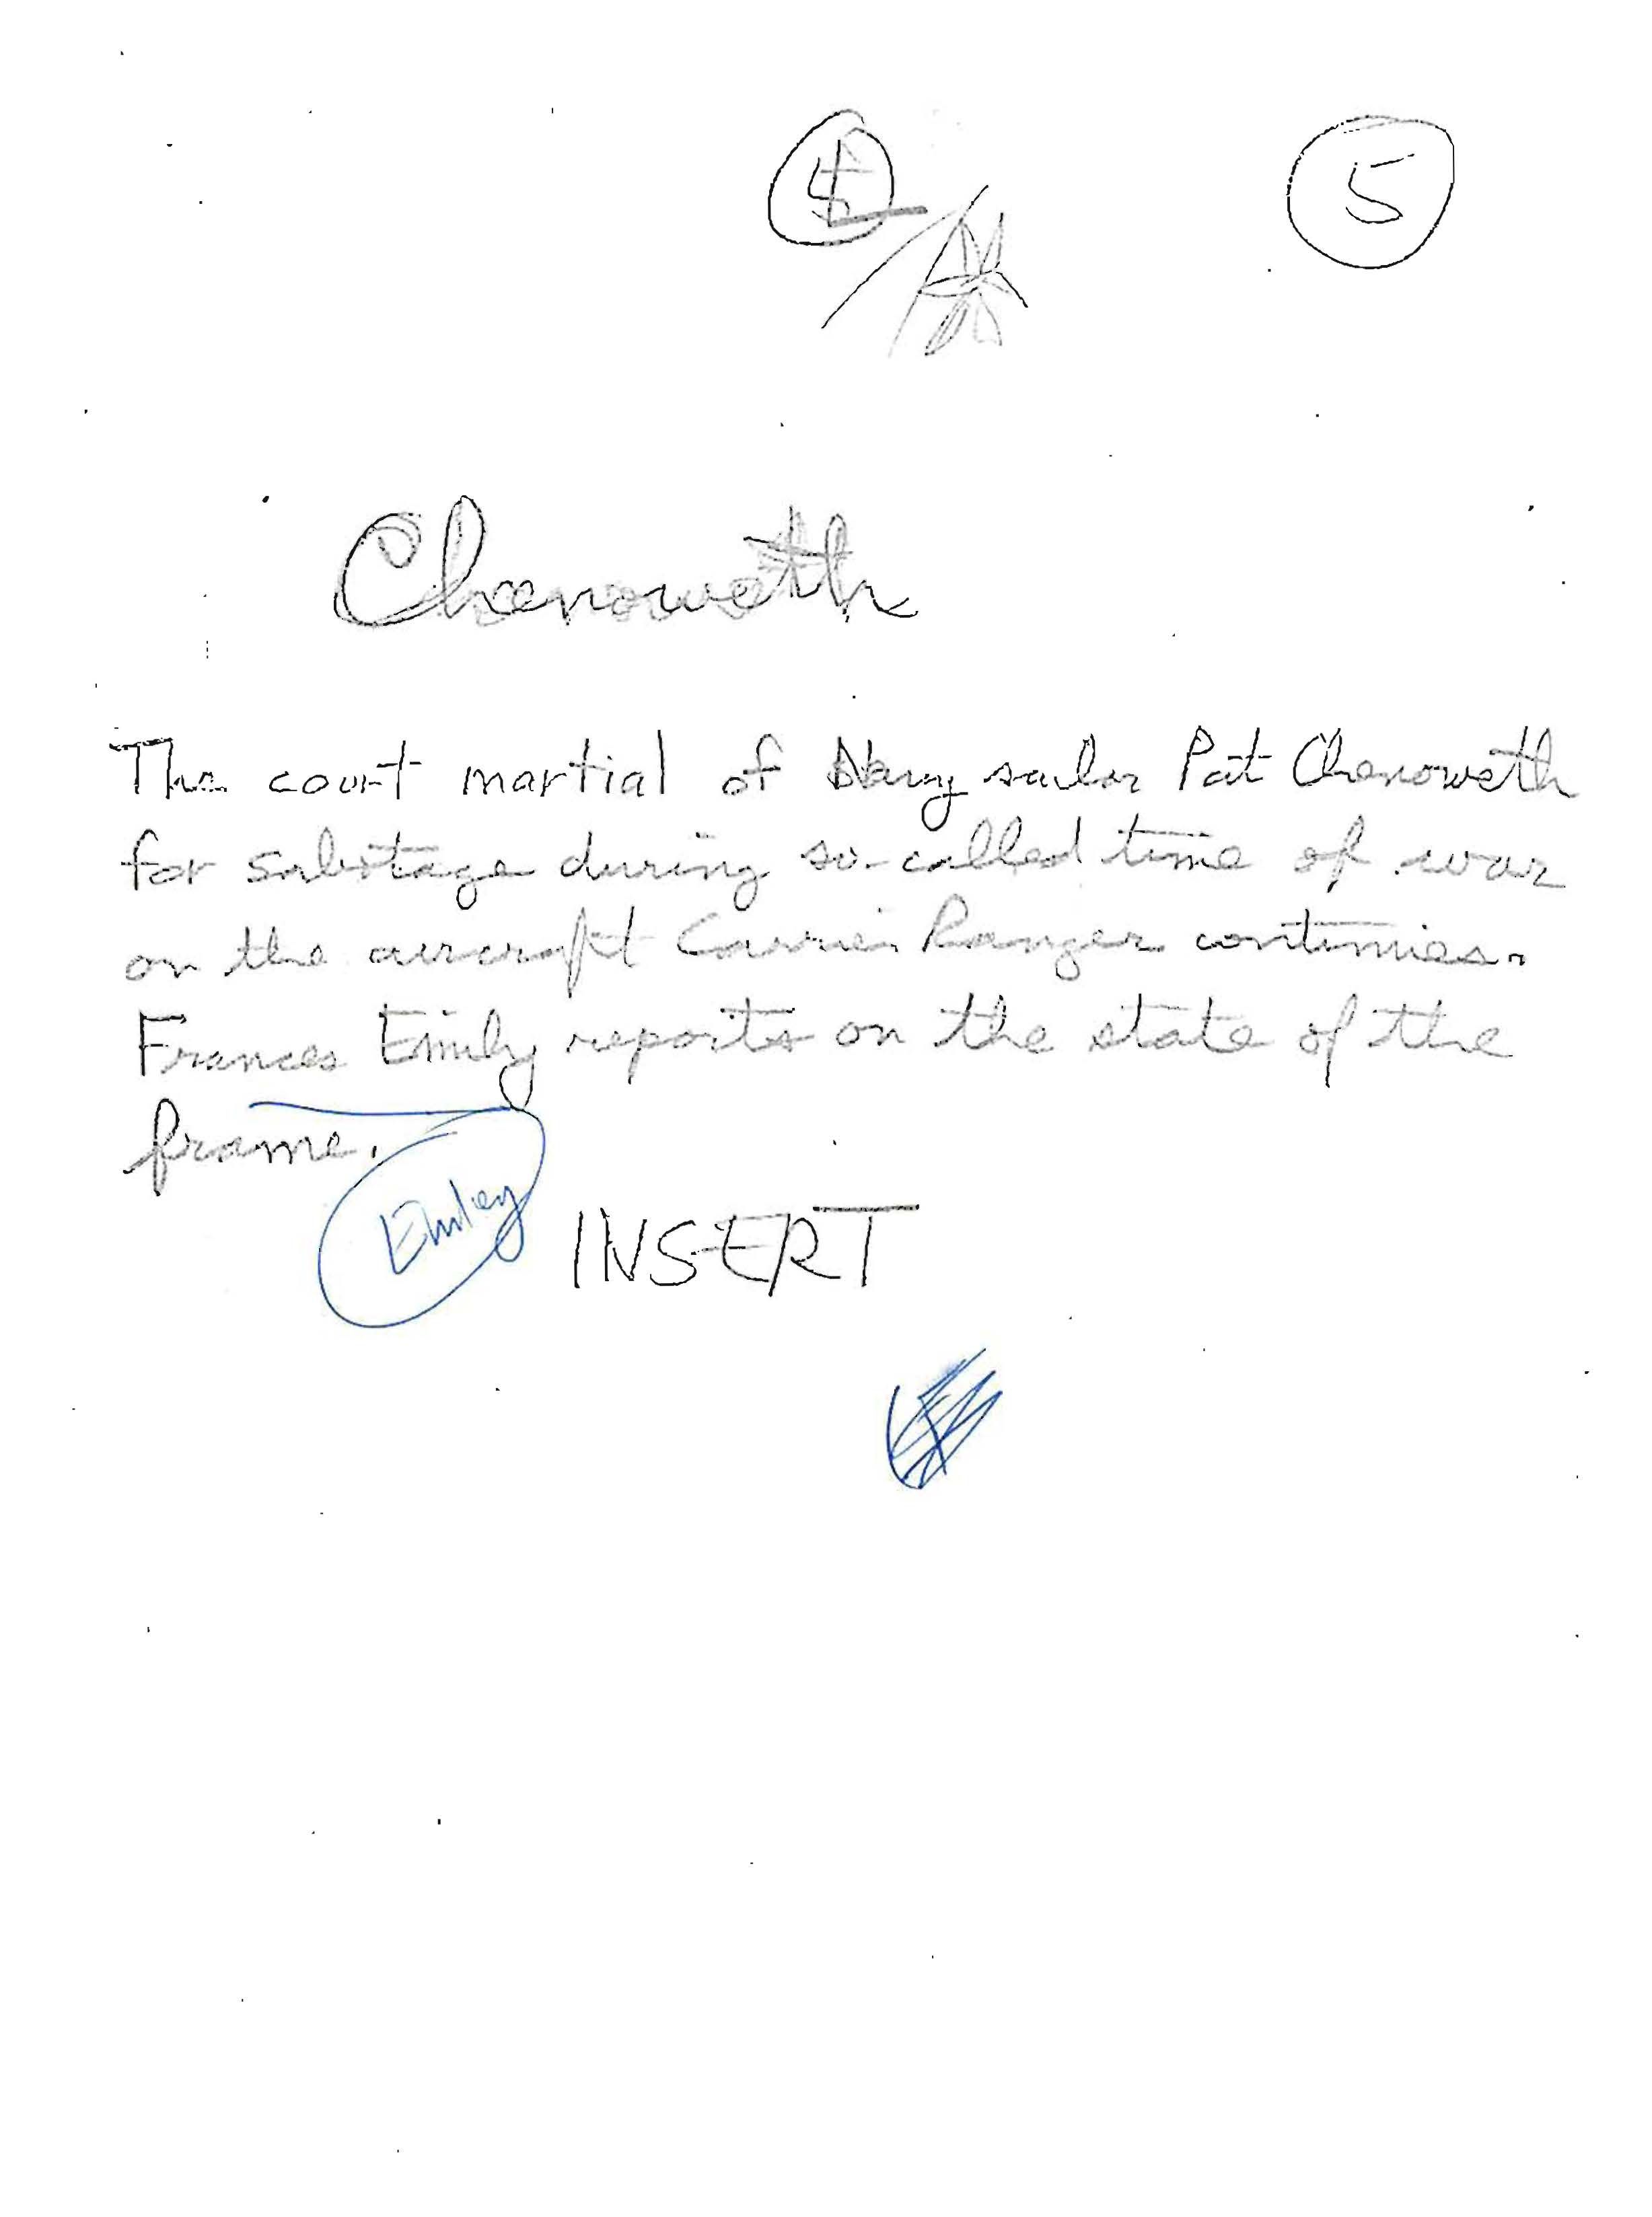 5
Chenoweth
The court martial of Navy sailor Pat Chenoweth
for sabotage during so-called time of war
on the aircraft Carrier Ranger continues.
Frances Emily reports on the state of the
frame.
Emley
INSERT